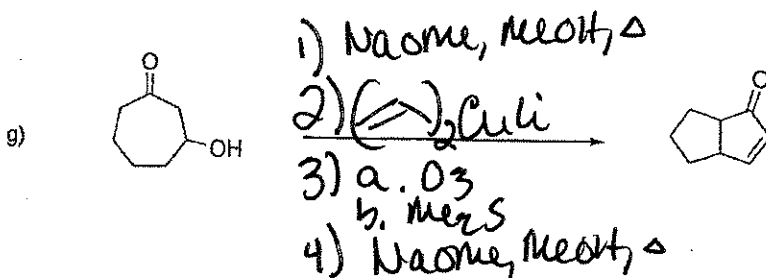 1) NaOMe, MeOH, Δ
2) ( )₂CuLi
g)
O
OH
3) a. O3
b. Me2S
4) NaOMe, MeOH, Δ
O